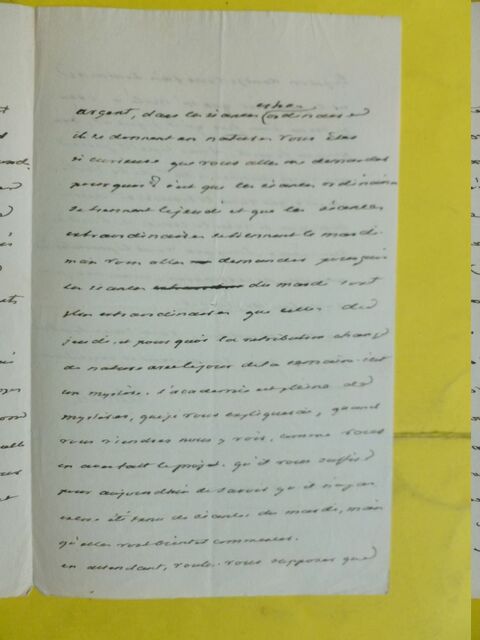 argent, dans les séances extra ordinaires
il se donnent en nature. vous êtes
si curieuse que vous allez me demander
pourquoi? c'est que les séances ordinaires
se tiennent le jeudi et que les séances
extraordinaires se tiennent le mardi.
mais vous allez demander pourquoi
les séances du mardi sont
plus extraordinaires que celles du
jeudi, et pourquoi la retribution change
de nature avec le jour de la semaine. c'est
un mystère. l'academie est pleine de
mystères, que je vous expliquerai, quand
vous viendrez nous y voir, comme vous
en avez fait le projet. qu'il vous suffise
pour aujourdhui de savoir qu'il n'a pas
encore été tenu de séances du mardi, mais
qu'elles vont bientot commencer.
en attendant, voulez-vous supposer que